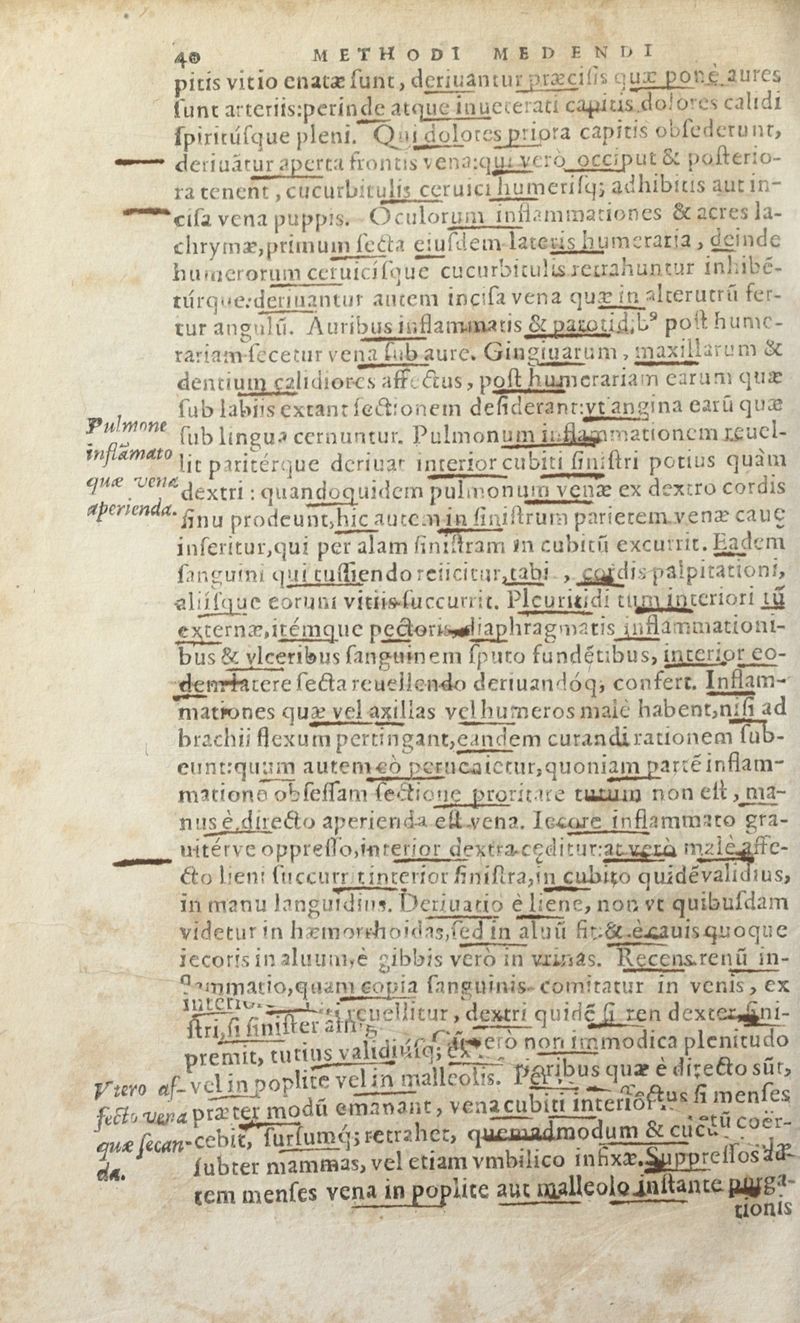 40 METHODI MEDENDI
pitis vitio enatæ ſunt, deriuantur præciſis quæ ponè aures
ſunt arteriis:perinde atque inueterati capitis dolores calidi
ſpiritúſque pleni. Qui dolores priora capitis obſederunt,
deriuātur aperta frontis vena:qui verò occiput & poſterio-
ra tenent, cucurbitulis ceruici humeriſq; adhibitis aut in-
ciſa vena puppis. Oculorum inflammationes & acres la-
chrymæ,primum ſecta eiuſdem lateris humeraria, deinde
humerorum ceruicíſque cucurbitulis retrahuntur inhibē-
túrque:deriuantur autem inciſa vena quæ in alterutrū fer-
tur angulū. Auribus inflammatis & parotid;bꝰ poſt hume-
rariam ſecetur vena ſub aure. Gingiuarum, maxillarum &
dentium calidiores affectus, poſt humerariam earum quæ
ſub labiis extant ſectionem deſiderant:vt angina earū quæ
ſub lingua cernuntur. Pulmonum inflammationem reuel-
lit paritérque deriuat interior cubiti ſiniſtri potius quàm
dextri : quandoquidem pulmonum venæ ex dextro cordis
ſinu prodeunt,hic autem in ſiniſtrum parietem venæ cauę
inſeritur,qui per alam ſiniſtram in cubitū excurrit. Eadem
ſanguini qui tuſſiendo reiicitur,tabi , cordis palpitationi,
aliiſque eorum vitiis ſuccurrit. Pleuritidi tum interiori tū
externæ,itémque pectoris diaphragmatis inflammationi-
bus & vlceribus ſanguinem ſputo fundētibus, interior eo-
dem latere ſecta reuellendo deriuandóq; confert. Inflam-
mationes quæ vel axillas vel humeros malè habent,niſi ad
brachii flexum pertingant,eandem curandi rationem ſub-
eunt:quum autem eò peruenietur,quoniam partē inflam-
matione obſeſſam ſectione proritare tutum non eſt, ma-
nus è directo aperienda eſt vena. Iecore inflammato gra-
uitérve oppreſſo,interior dextra cęditur:at verò malè affe-
cto lieni ſuccurrit interior ſiniſtra,in cubito quidē validius,
in manu languidius. Deriuatio è liene, non vt quibuſdam
videtur in hæmorrhoidas,ſed in aluū fit:& è cauis quoque
iecoris in aluum,è gibbis verò in vrinas. Recens renū in-
flammatio,quam copia ſanguinis comitatur in venis, ex
reuellitur, dextri quidē ſi ren dexter,ſini-
ſtri,ſi ſiniſter
premit, tutius validiúſq; verò non immodica plenitudo
vel in poplite vel in malleolis. Partibus quæ è directo sūt,
præter modū emanant, vena cubiti interior ſi menſes
cebit, ſurſumq; retrahet, quemadmodum & coer-
ſubter mammas, vel etiam vmbilico infixæ. Suppreſſos
tem menſes vena in poplite aut malleolo inſtante purga-
tionis
Pulmone
inflāmato
quæ vena
aperienda.
Vtero af-
fecto vena
quæ ſecan-
da.